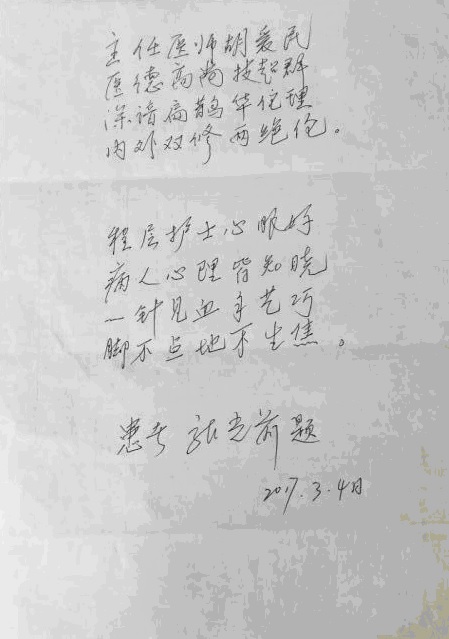 主任医师胡爱民
医德高尚技超群
深谙扁鹊华佗理
内外双修两绝伦。
程层护士心眼好
病人心理皆知晓
一针见血手艺巧
脚不点地不生焦。
患者 张光前 题
2017.3.4日